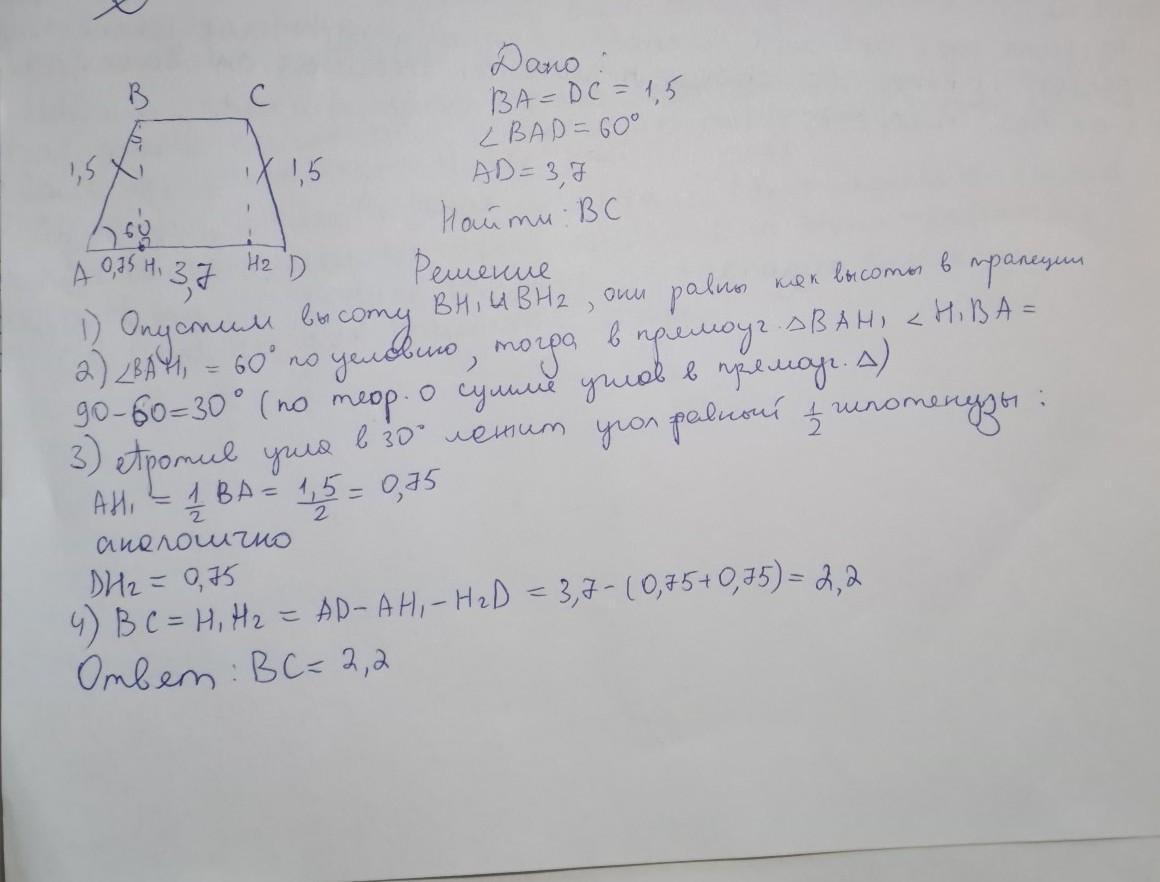 Дано:
BA = DC = 1,5
∠BAD = 60°
AD = 3,7
Найти: BC
B C
1,5 1,5
60
A 0,75 H₁ 3,7 H₂ D
Решение
1) Опустим высоту BH₁ и BH₂, они равны как высоты в трапеции
2) ∠BAH₁ = 60° по условию, тогда в прямоуг. △BAH₁ ∠H₁BA =
90-60=30° (по теор. о сумме углов в прямоуг. △)
3) Против угла в 30° лежит угол равный 1/2 гипотенузы:
AH₁ = 1/2 BA = 1,5/2 = 0,75
аналогично
DH₂ = 0,75
4) BC = H₁H₂ = AD - AH₁ - H₂D = 3,7 - (0,75+0,75) = 2,2
Ответ: BC = 2,2